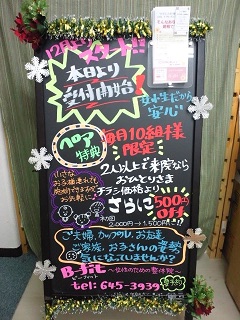 12月
スタート!!
本日より
受付開始!
女性だから
安心
ペア
特典
毎月10組様
限定
2人以上で来院なら
おひとりさま
チラシ価格より
さらに500円
OFF
小さな
お子様連れでも
お気軽に♪
2,000円→1,500円
ご夫婦、カップル、お友達、
ご家族、お子さんの姿勢
気になっていませんか?
B-fit
〜女性のための整体院〜
ビーフィット
tel:645-3939